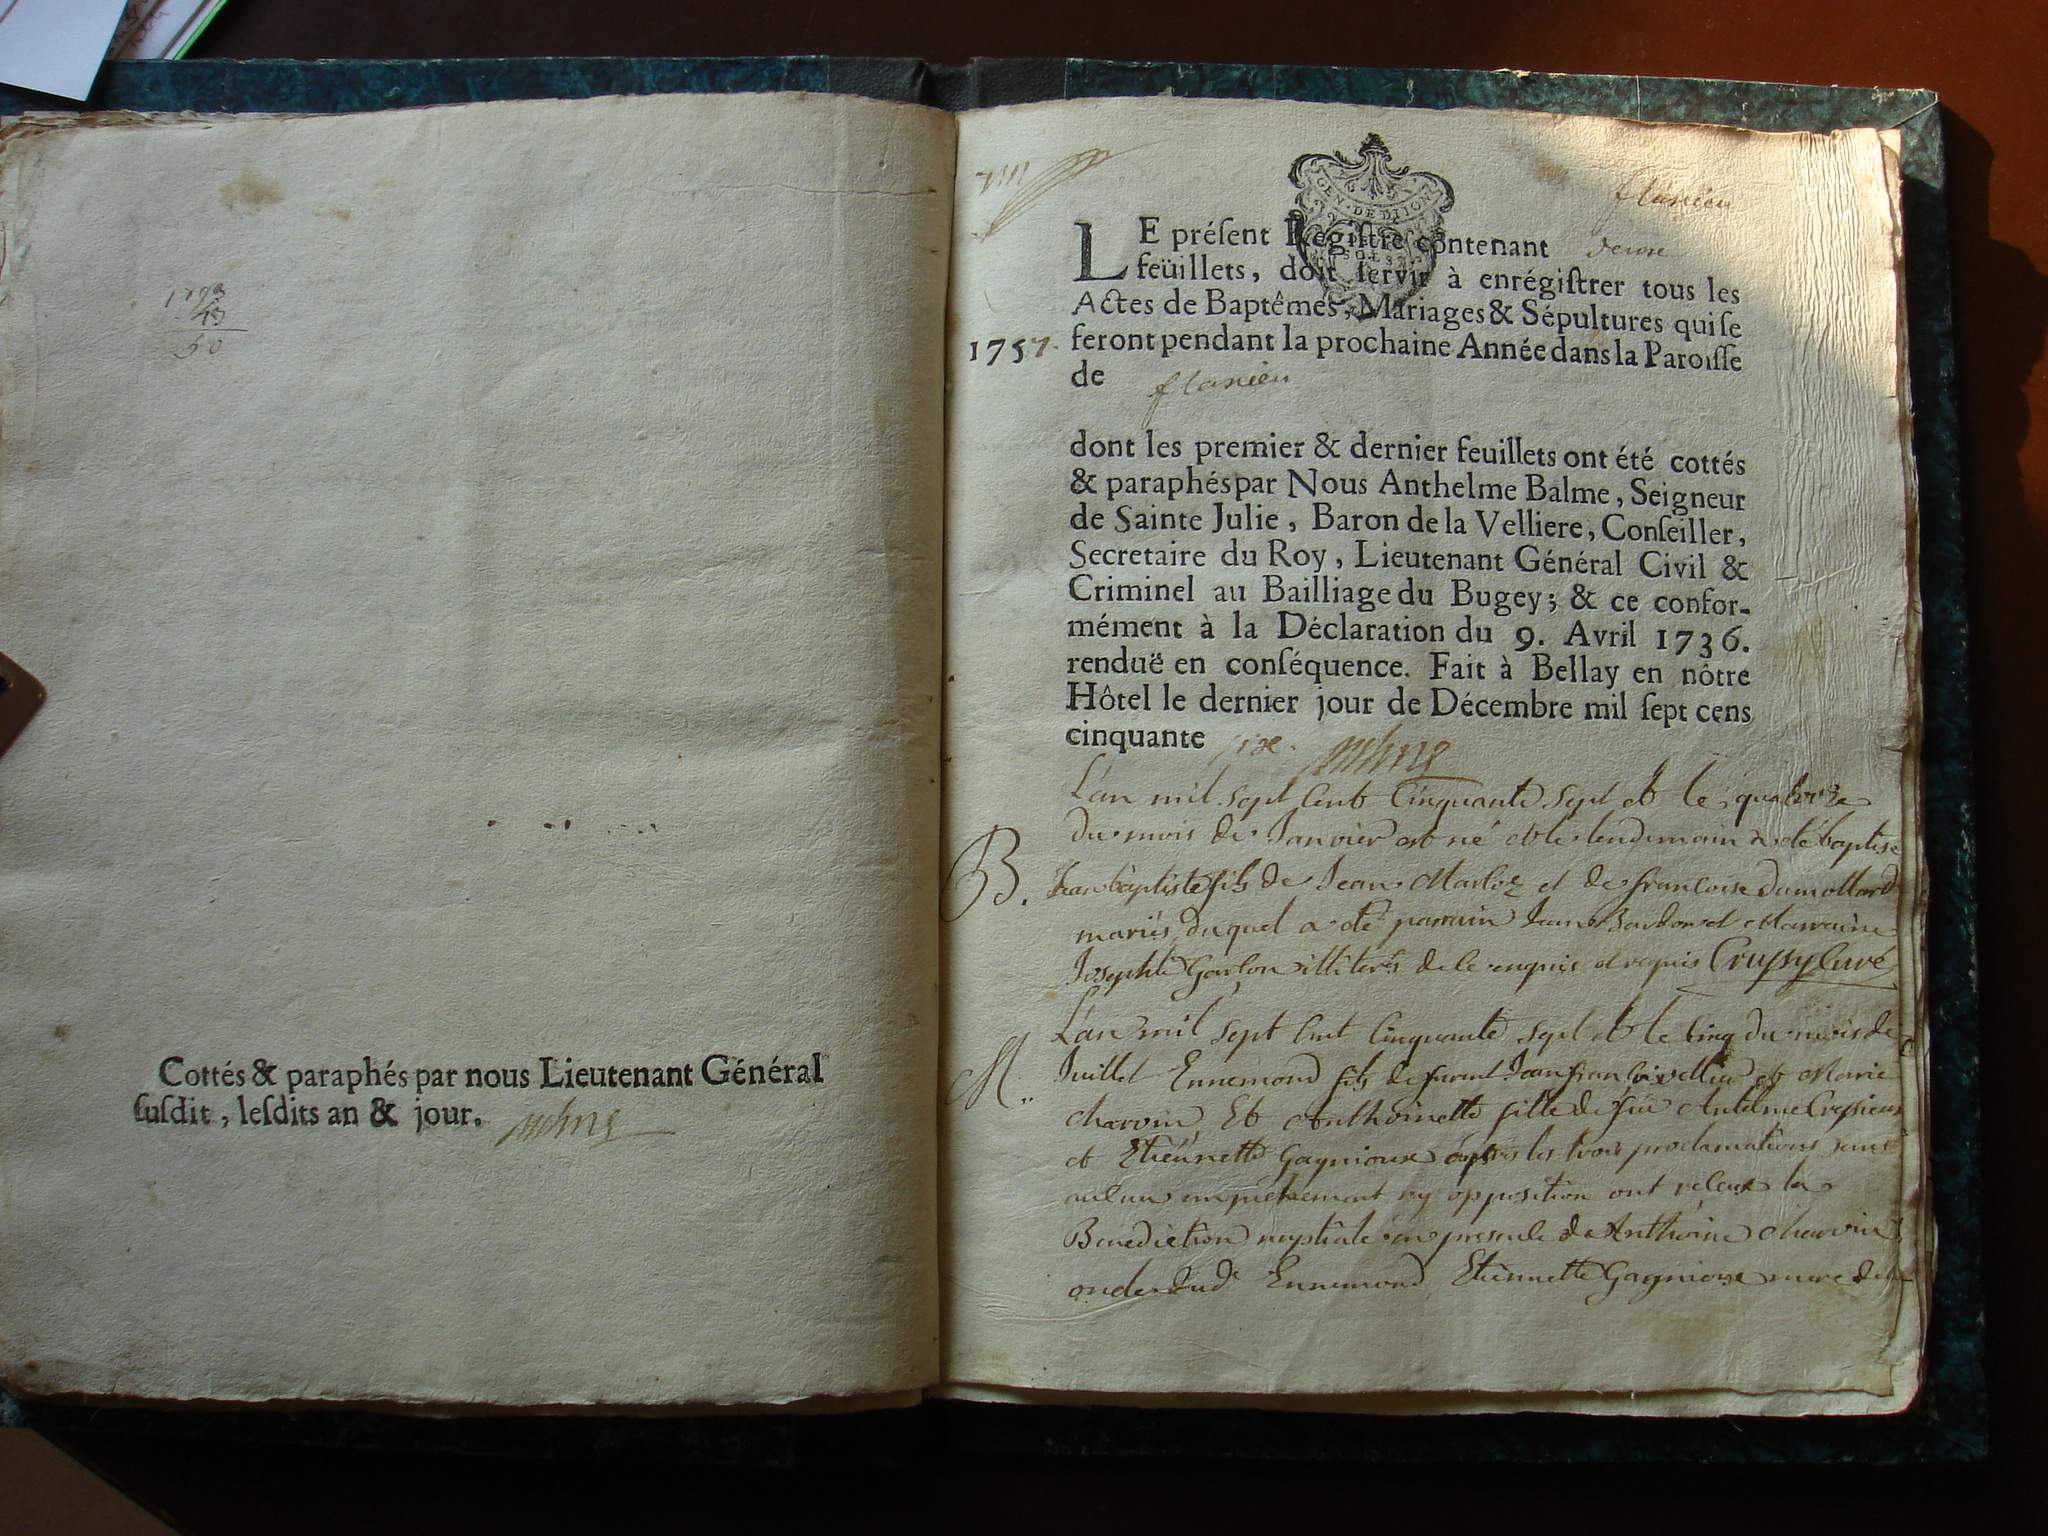 50
Cottés & paraphés par nous Lieutenant Général
ſuſdit, leſdits an & jour.
GEN · DE DIJON
flaxieu
LE préſent Regiſtre contenant deux
feüillets, doit ſervir à enrégiſtrer tous les
Actes de Baptêmes, Mariages & Sépultures qui ſe
1757. feront pendant la prochaine Année dans la Paroiſſe
de flaxieu
dont les premier & dernier feuillets ont été cottés
& paraphés par Nous Anthelme Balme, Seigneur
de Sainte Julie, Baron de la Velliere, Conſeiller,
Secretaire du Roy, Lieutenant Général Civil &
Criminel au Bailliage du Bugey; & ce confor-
mément à la Déclaration du 9. Avril 1736.
renduë en conſéquence. Fait à Bellay en nôtre
Hôtel le dernier jour de Décembre mil ſept cens
cinquante six.
L'an mil sept cent cinquante sept et le quatorze
du mois de Janvier est né et le lendemain a été baptisé
B. Jean baptiste fils de Jean Marloz et de francoise dumollard
mariés, duquel a été parrain et Marraine
Josephte illiterés de ce enquis et requis Crussy Curé
L'an mil sept cent cinquante sept et le cinq du mois de
M. Juillet Ennemond fils de Jean fran et Marie
charvin Et Anthoinette fille de feu Antelme Cressieux
et Etiennette Gagnioux après les trois proclamations sans
aucun empechement ny opposition ont reçeu la
Benediction nuptiale en presence de Anthoine charvin
oncle dud Ennemond, Etiennette Gagnioux mere de